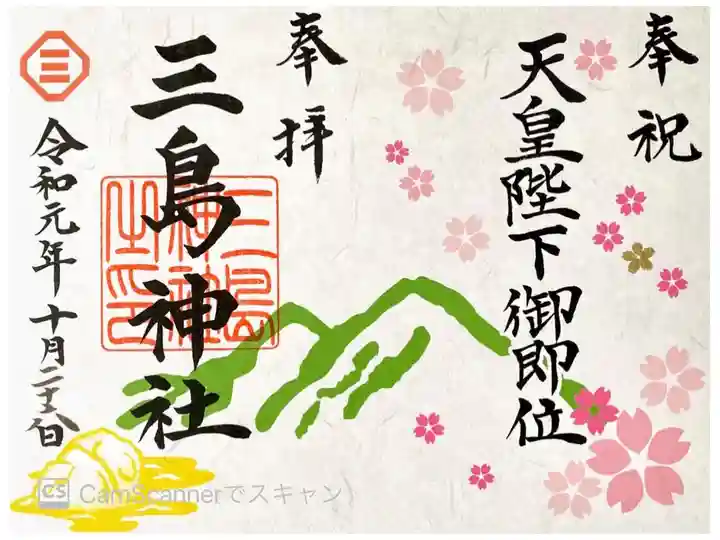 奉祝
天皇陛下御即位
奉拝
三島神社
三島神社之印
三
令和元年十月二十六日
CS CamScannerでスキャン